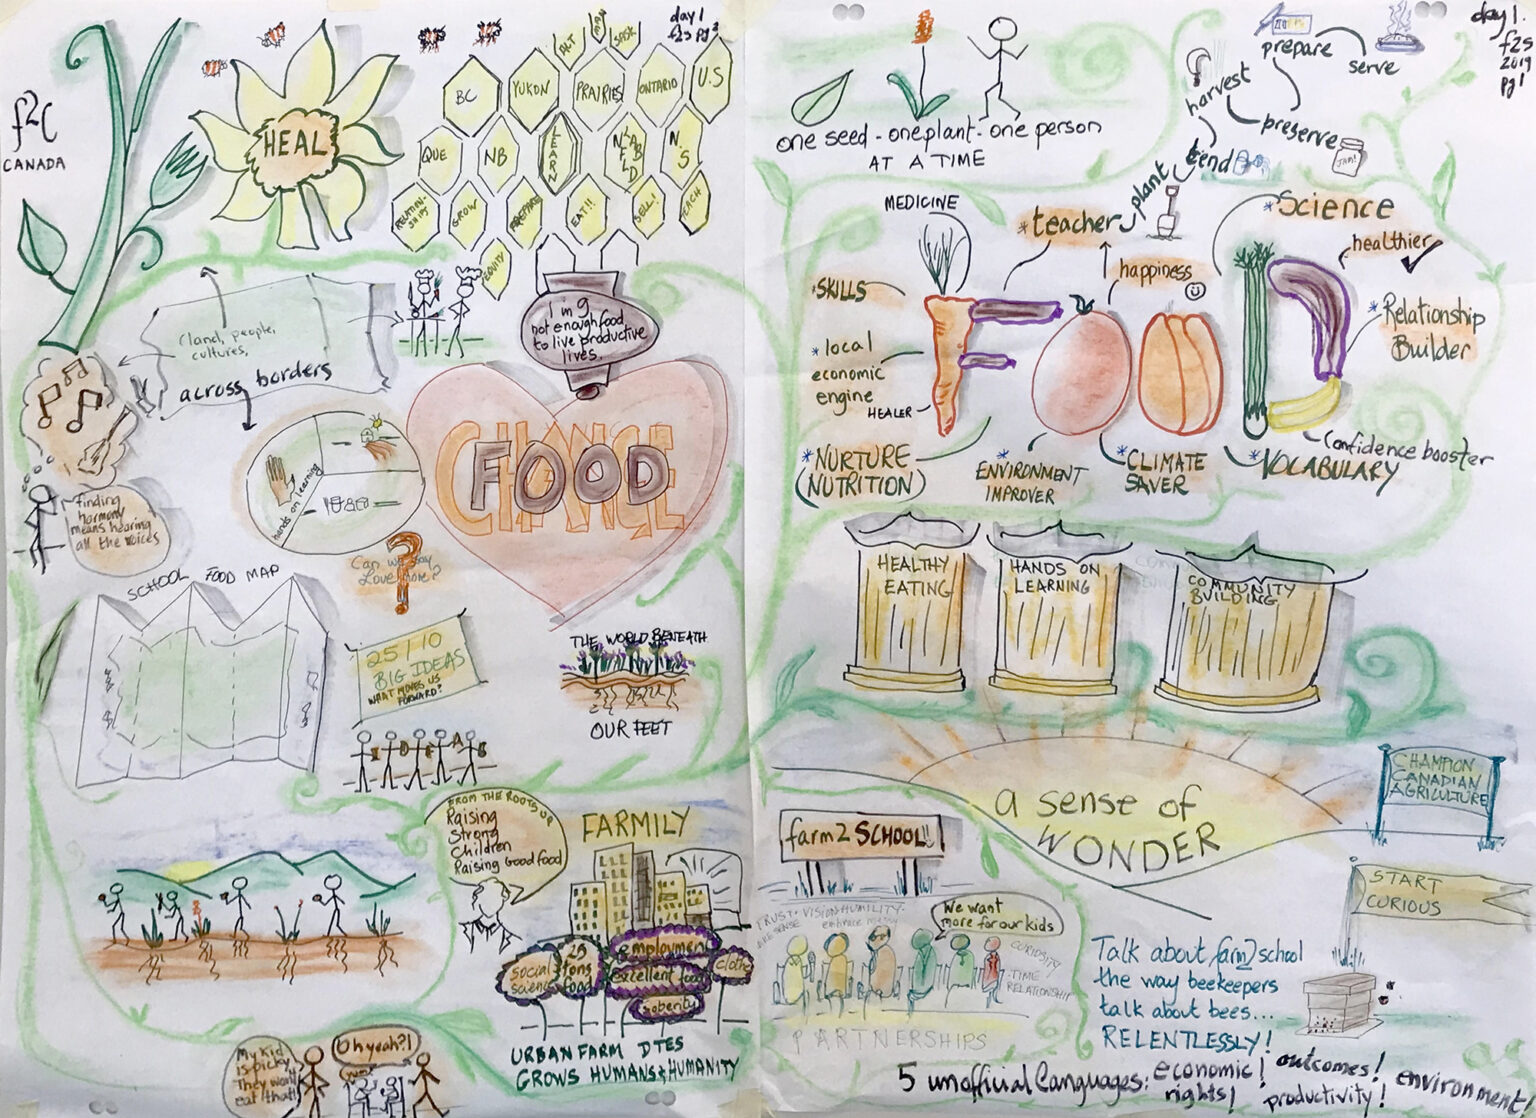 day 1
f2s pg 2
f2C
CANADA
HEAL
BC
YUKON
ALT
MAN
SASK
PRAIRIES
ONTARIO
U.S
QUE
NB
LEARN
NFLD
LAB
N.S
RELATION-
SHIPS
GROW
PREPARE
EAT!!
SELL!
EACH
EQUITY
(land, people,
cultures,
across borders
1 in 9
not enough food
to live productive
lives.
CHANGE
FOOD
hands on learning
finding
harmony
means hearing
all the voices
Can we say
Love more?
?
SCHOOL FOOD MAP
25/10
BIG IDEAS
WHAT MOVES US
FORWARD?
THE WORLD BENEATH
OUR FEET
FROM THE ROOTS UP
Raising
Strong
Children
Raising Good food
FARMILY
social
science
25
tons
food
employment
excellent food
sobriety
URBAN FARM DTES
GROWS HUMANS & HUMANITY
My kid
is picky
They won't
eat that!
Oh yeah?!
day 1.
f2s
2019
pg 1
one seed - one plant - one person
AT A TIME
plant
tend
harvest
prepare
serve
preserve
JAM!
MEDICINE
* teacher
happiness
* Science
healthier ✓
* SKILLS
* local
economic
engine
HEALER
* Relationship
Builder
* NURTURE
(NUTRITION)
ENVIRONMENT
IMPROVER
* CLIMATE
SAVER
* VOCABULARY
Confidence booster
HEALTHY
EATING
HANDS ON
LEARNING
COMMUNITY
BUILDING
a sense of
WONDER
CHAMPION
CANADIAN
AGRICULTURE
START
CURIOUS
farm2SCHOOL!!
TRUST · VISION · HUMILITY ·
embrace
We want
more for our kids
CURIOSITY
· TIME
RELATIONSHIP
PARTNERSHIPS
Talk about farm2school
the way beekeepers
talk about bees...
RELENTLESSLY!
5 unofficial languages: economic! outcomes! environment!
rights! productivity!